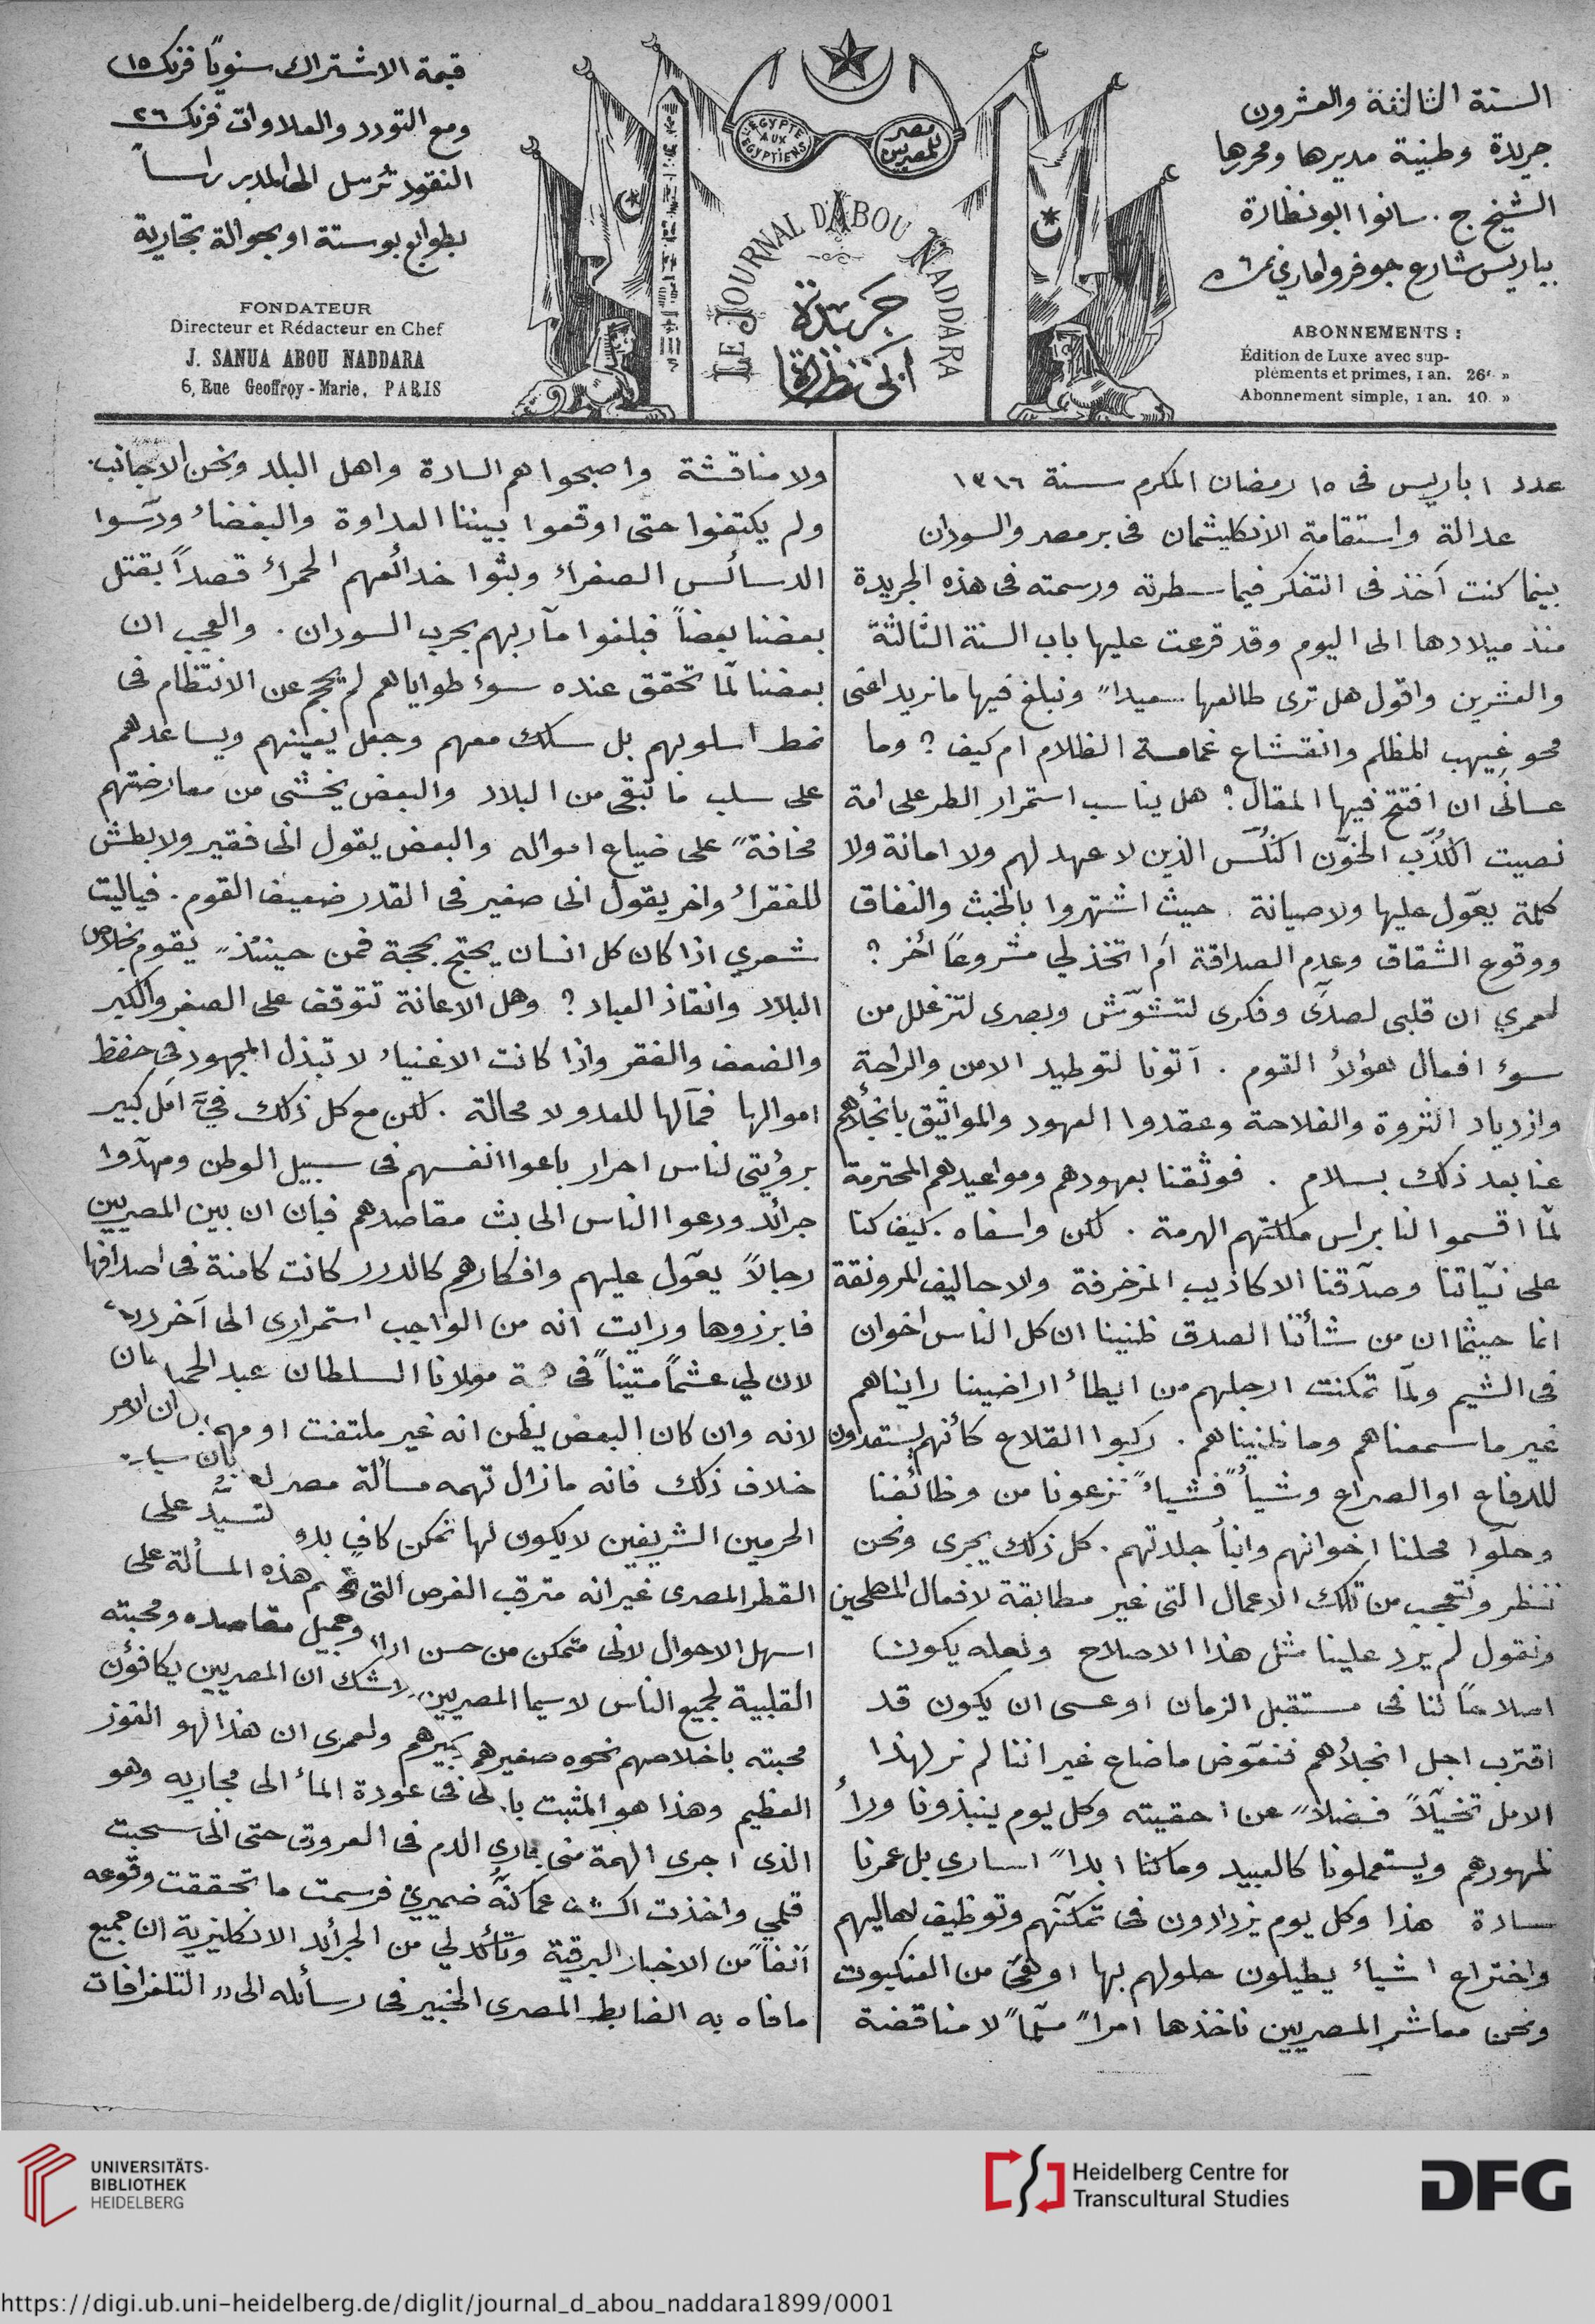 السنة الثالثة والعشرون
جريدة وطنية مديرها ومحررها
الشيخ ج. سانوا ابو نظارة
بباريس شارع جوفروا ماري نمرة ٦
ABONNEMENTS :
Édition de Luxe avec sup-
pléments et primes, 1 an. 26f. »
Abonnement simple, 1 an. 10 »
L'EGYPTE
AUX
EGYPTIENS
مصر
للمصريين
LE JOURNAL D'ABOU NADDARA
جريدة
ابي نظارة
قيمة الاشتراك سنويًا فرنك ١٥
ومع التورد والعلاوات فرنك ٢٦
النقود تُرسل الى المدير راساً
بطوابع بوستة او بحوالة تجارية
FONDATEUR
Directeur et Rédacteur en Chef
J. SANUA ABOU NADDARA
6, Rue Geoffroy-Marie, PARIS
عدد ١ باريس فى ١٥ رمضان المكرم سنة ١٣١٦
عدالة واستقامة الانكليشمان فى بر مصر والسودان
بينما كنت آخذ فى التفكر فيما سطرته ورسمته فى هذه الجريدة
منذ ميلادها الى اليوم وقد قرعت عليها باب السنة الثالثة
والعشرين واقول هل ترى طالعها سعيداً ونبلغ فيها ما نريد اعنى
محو غيهب المظلم وانقشاع غمامة الظلام ام كيف ؟ وما
عسانى ان افتتح فيها المقال ؟ هل يناسب استمرار الطر على امة
نصيت الكُذّب الخوّن النكّس الذين لا عهد لهم ولا امانة ولا
كلمة يعوّل عليها ولا صيانة . حيث اشتهروا بالخبث والنفاق
ووقوع الشقاق وعدم الصداقة أم اتخذ لي مشروعاً أخر ؟
لعمري ان قلبى لصدَّى وفكرى لتشوّش وبصرى لتزغلل من
سوء افعال هؤلاُ القوم . آتونا لتوطيد الامن والراحة
وازدياد الثروة والفلاحة وعقدوا العهود والمواثيق بانجلاُهم
عنا بعد ذلك بسلام . فوثقنا بعهودهم ومواعيدهم المحترمة
لمّا اقسموا لنا براس ملكتهم الهرمة . لكن واسفاه . كيف كنا
على نيّاتنا وصدّقنا الاكاذيب المزخرفة والاحاليف المرونقة
انما حيثما ان من شأننا الصدق ظنينا ان كل الناس اخوان
فى الشيم ولمّا تمكنت ارجلهم من ايطاُ اراضينا رايناهم
غير ما سمعناهم وما ظنيناهم . ركبوا القلاع كأنهم يستعدون
للدفاع او الصراع وشيأً فشياًء نزعونا من وظائفنا
وحلّوا محلنا اخوانهم وابنأ جلدتهم . كل ذلك يجرى ونحن
ننظر ونتعجب من تلك الاعمال التى غير مطابقة لافعال المصلحين
ونقول لم يرد علينا مثل هذا الاصلاح ولعله يكون
اصلاحاً لنا فى مستقبل الزمان او عسى ان يكون قد
اقترب اجل انجلاُهم فنعوّض ما ضاع غير اننا لم نر لهذا
الامل تخيّلاً فضلاً عن احقيته وكل يوم ينبذونا وراُ
ظهورهم ويستعملونا كالعبيد وما كنا ابداً اسارى بل عمرنا
سادة هذا وكل يوم يزدادون فى تمكنّهم وتوظيف اهاليهم
واختراع اشياء يطيلون حلولهم بها اوهى من العنكبوت
ونحن معاشر المصريين ناخذها امراً مسلّماً لا مناقضة
ولا مناقشة واصبحوا هم السادة واهل البلد ونحن الاجانب.
ولم يكتفوا حتى اوقعوا بيننا العداوة والبغضاء ودسّوا
الدسائس الصفراء وبثوا خدائعهم الحمراء قصداً بقتل
بعضنا بعضاً فبلغوا مآربهم بحرب السودان . والعجب ان
بعضنا لمّا تحقق عنده سوء طواياهم لم يحجم عن الانتظام فى
نمط اسلوبهم بل سلك معهم وجعل يعينهم ويساعدهم
على سلب ما تبقى من البلاد والبعض يخشى من معارضتهم
مخافةً على ضياع امواله والبعض يقول انى فقير ولا بطش
للفقراُ واخر يقول انى صغير فى القدر ضعيف القوم . فياليت
شعري اذا كان كل انسان يحتج بحجة فمن حينئذٍ يقوم بخلاص
البلاد وانقاذ العباد ؟ وهل الاعانة تتوقف على الصغر والكبر
والضعف والفقر واذا كانت الاغنياء لا تبذل المجهود فى حفظ
اموالها فمآلها للعدو لا محالة . لكن مع كل ذلك فيَّ أمَل كبير
برؤيتى لناس احرار باعوا انفسهم فى سبيل الوطن ومهدّوا
جرائد ودعوا الناس الى بث مقاصدهم فبان ان بين المصريين
رجالاً يعوّل عليهم وافكارهم كالدرر كانت كامنة فى اصدافها
فابرزوها ورايت انه من الواجب استمرارى الى آخر
لان لي عشماً متيناً فى همة مولانا السلطان عبد الحميد
لانه وان كان البعض يظن انه غير ملتفت او ان الامر
خلاف ذلك فانه ما زال تهمه مسألة مصر بان سيادته
الحرمين الشريفين لا يكون لها تمكن كافٍ على
القطر المصرى غير انه مترقب الفرص التى هذه المسألة على
اسهل الاحوال لانى متمكن من حسن وجميل مقاصده ومحبته
القلبية لجميع الناس لا سيما المصريين ولا شك ان المصريين يكافئون
محبته باخلاصهم نحوه صغيرهم وكبيرهم ولعمرى ان هذا لهو الفوز
العظيم وهذا هو المثبت فى عودة الماُ الى مجاريه وهو
الذى اجرى الهمة منى مجارى الدم فى العروق حتى انى سحبت
قلمي واخذت اكشف عما كنّه ضميري فرسمت ما تحققت وقوعه
آنفاً من الاخبار البرقية وتأكد لي من الجرائد الانكليزية ان جميع
ما فاه به الضابط المصرى الخبير فى رسائله الى « التلغرافات
UNIVERSITÄTS-
BIBLIOTHEK
HEIDELBERG
Heidelberg Centre for
Transcultural Studies
DFG
https://digi.ub.uni-heidelberg.de/diglit/journal_d_abou_naddara1899/0001